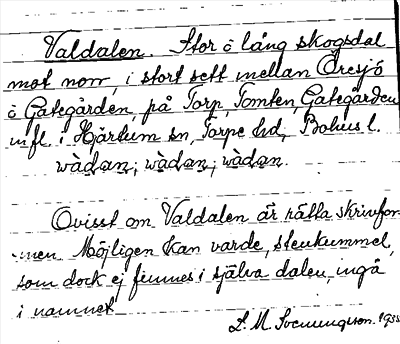 Valdalen. Stor o lång skogsdal
mot norr, i stort sett mellan Öresjö
o Gategården, på Torp, Tomten, Gategården
mfl. i Hjärtum sn, Torpe hd, Bohus l.
wàdan; wàdan; wàdan.
Ovisst om Valdalen är rätta skrivfor-
men. Möjligen kan varde, stenkummel,
som dock ej finnes i själva dalen, ingå
i namnet
D. M. Svenungsson. 1935